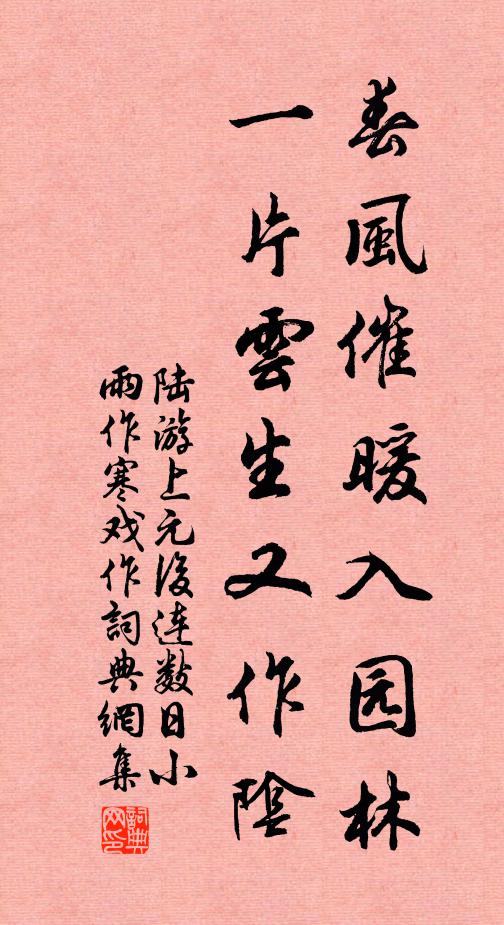 春風催暖入园林
一片雲生又作陰
陆游上元後连数日小
雨作寒戏作詞典網集
詞典网印